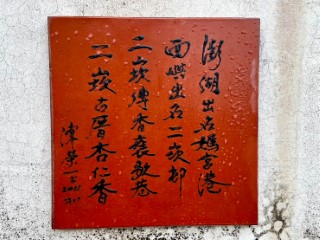 澎湖出名媽宮港
西嶼出名二崁邨
二崁傳香褒歌巷
二崁古厝杏仁香